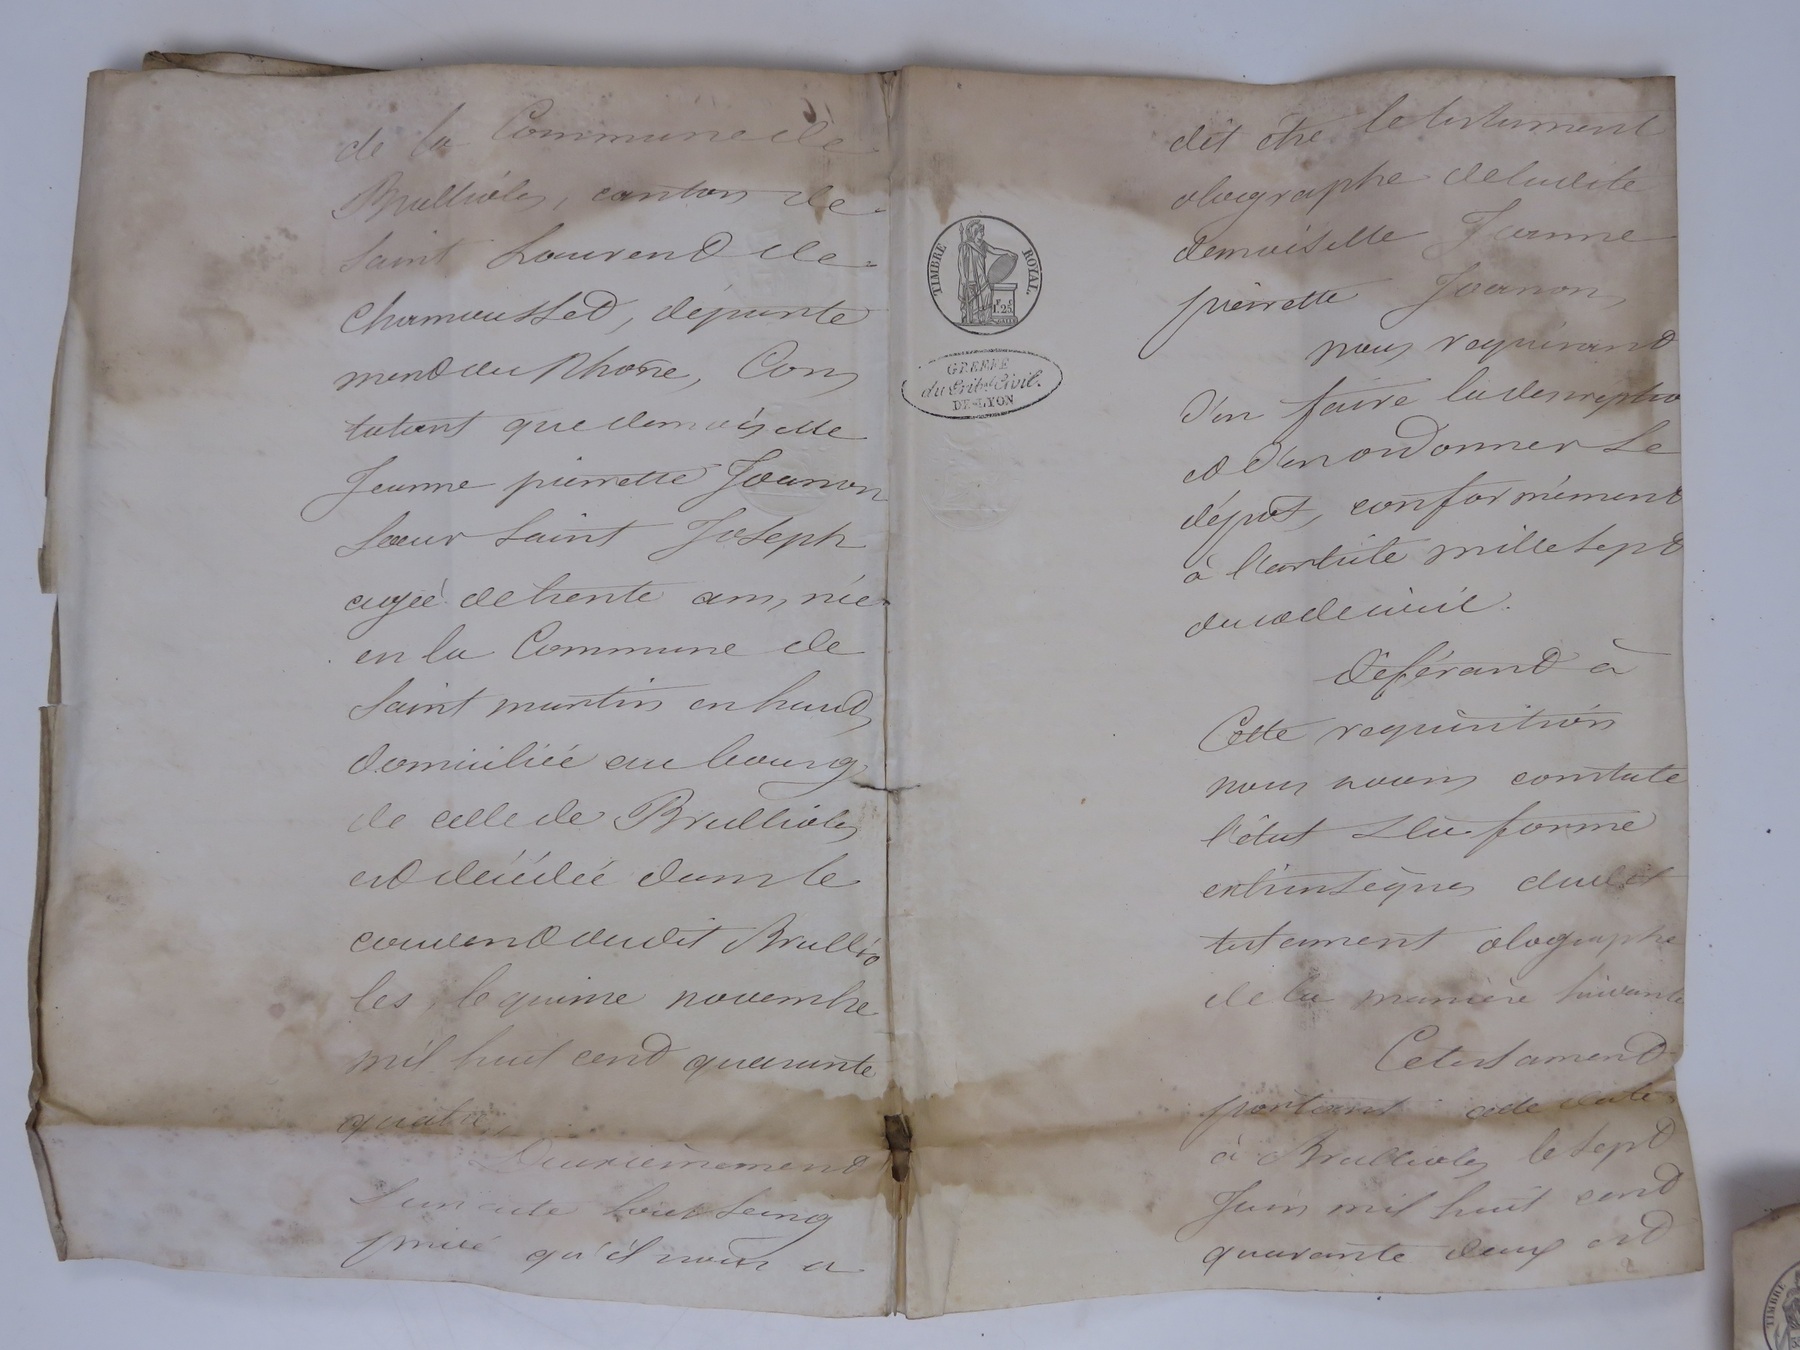 de la Commune de
Brullioles, canton de
Saint Laurend de
Chamoussed, départe
mend du Rhône, Cons
tatant que demoiselle
Jeanne pierrette Joannon
Sœur Saint Joseph
agée de trente ans, née
en la Commune de
Saint martin en haud,
domiciliée au bourg
de celle de Brullioles
ed décédée dans le
couvend dudit Brullio
les, le quinze novembre
mil huit cend quarante
quatre,
Deuxièmemend
d'un acte sous seing
privé qu'il nous a
TIMBRE ROYAL.
1.25
GREFFE
du Trib.al Civil.
DE LYON
dit être le testament
olographe de ladite
demoiselle Jeanne
pierrette Joannon,
nous requérand
d'en faire la description
et d'en ordonner le
dépôt, conformémend
à l'article mille sept
du code civil.
Déférand à
Cette requisition
nous avons constaté
l'état & la forme
extrinsèques dudit
testament olographe
de la manière suivante
Ce testamend
portant cette date
à Brullioles le sept
Juin mil huit cend
quarante deux ed
TIMBRE